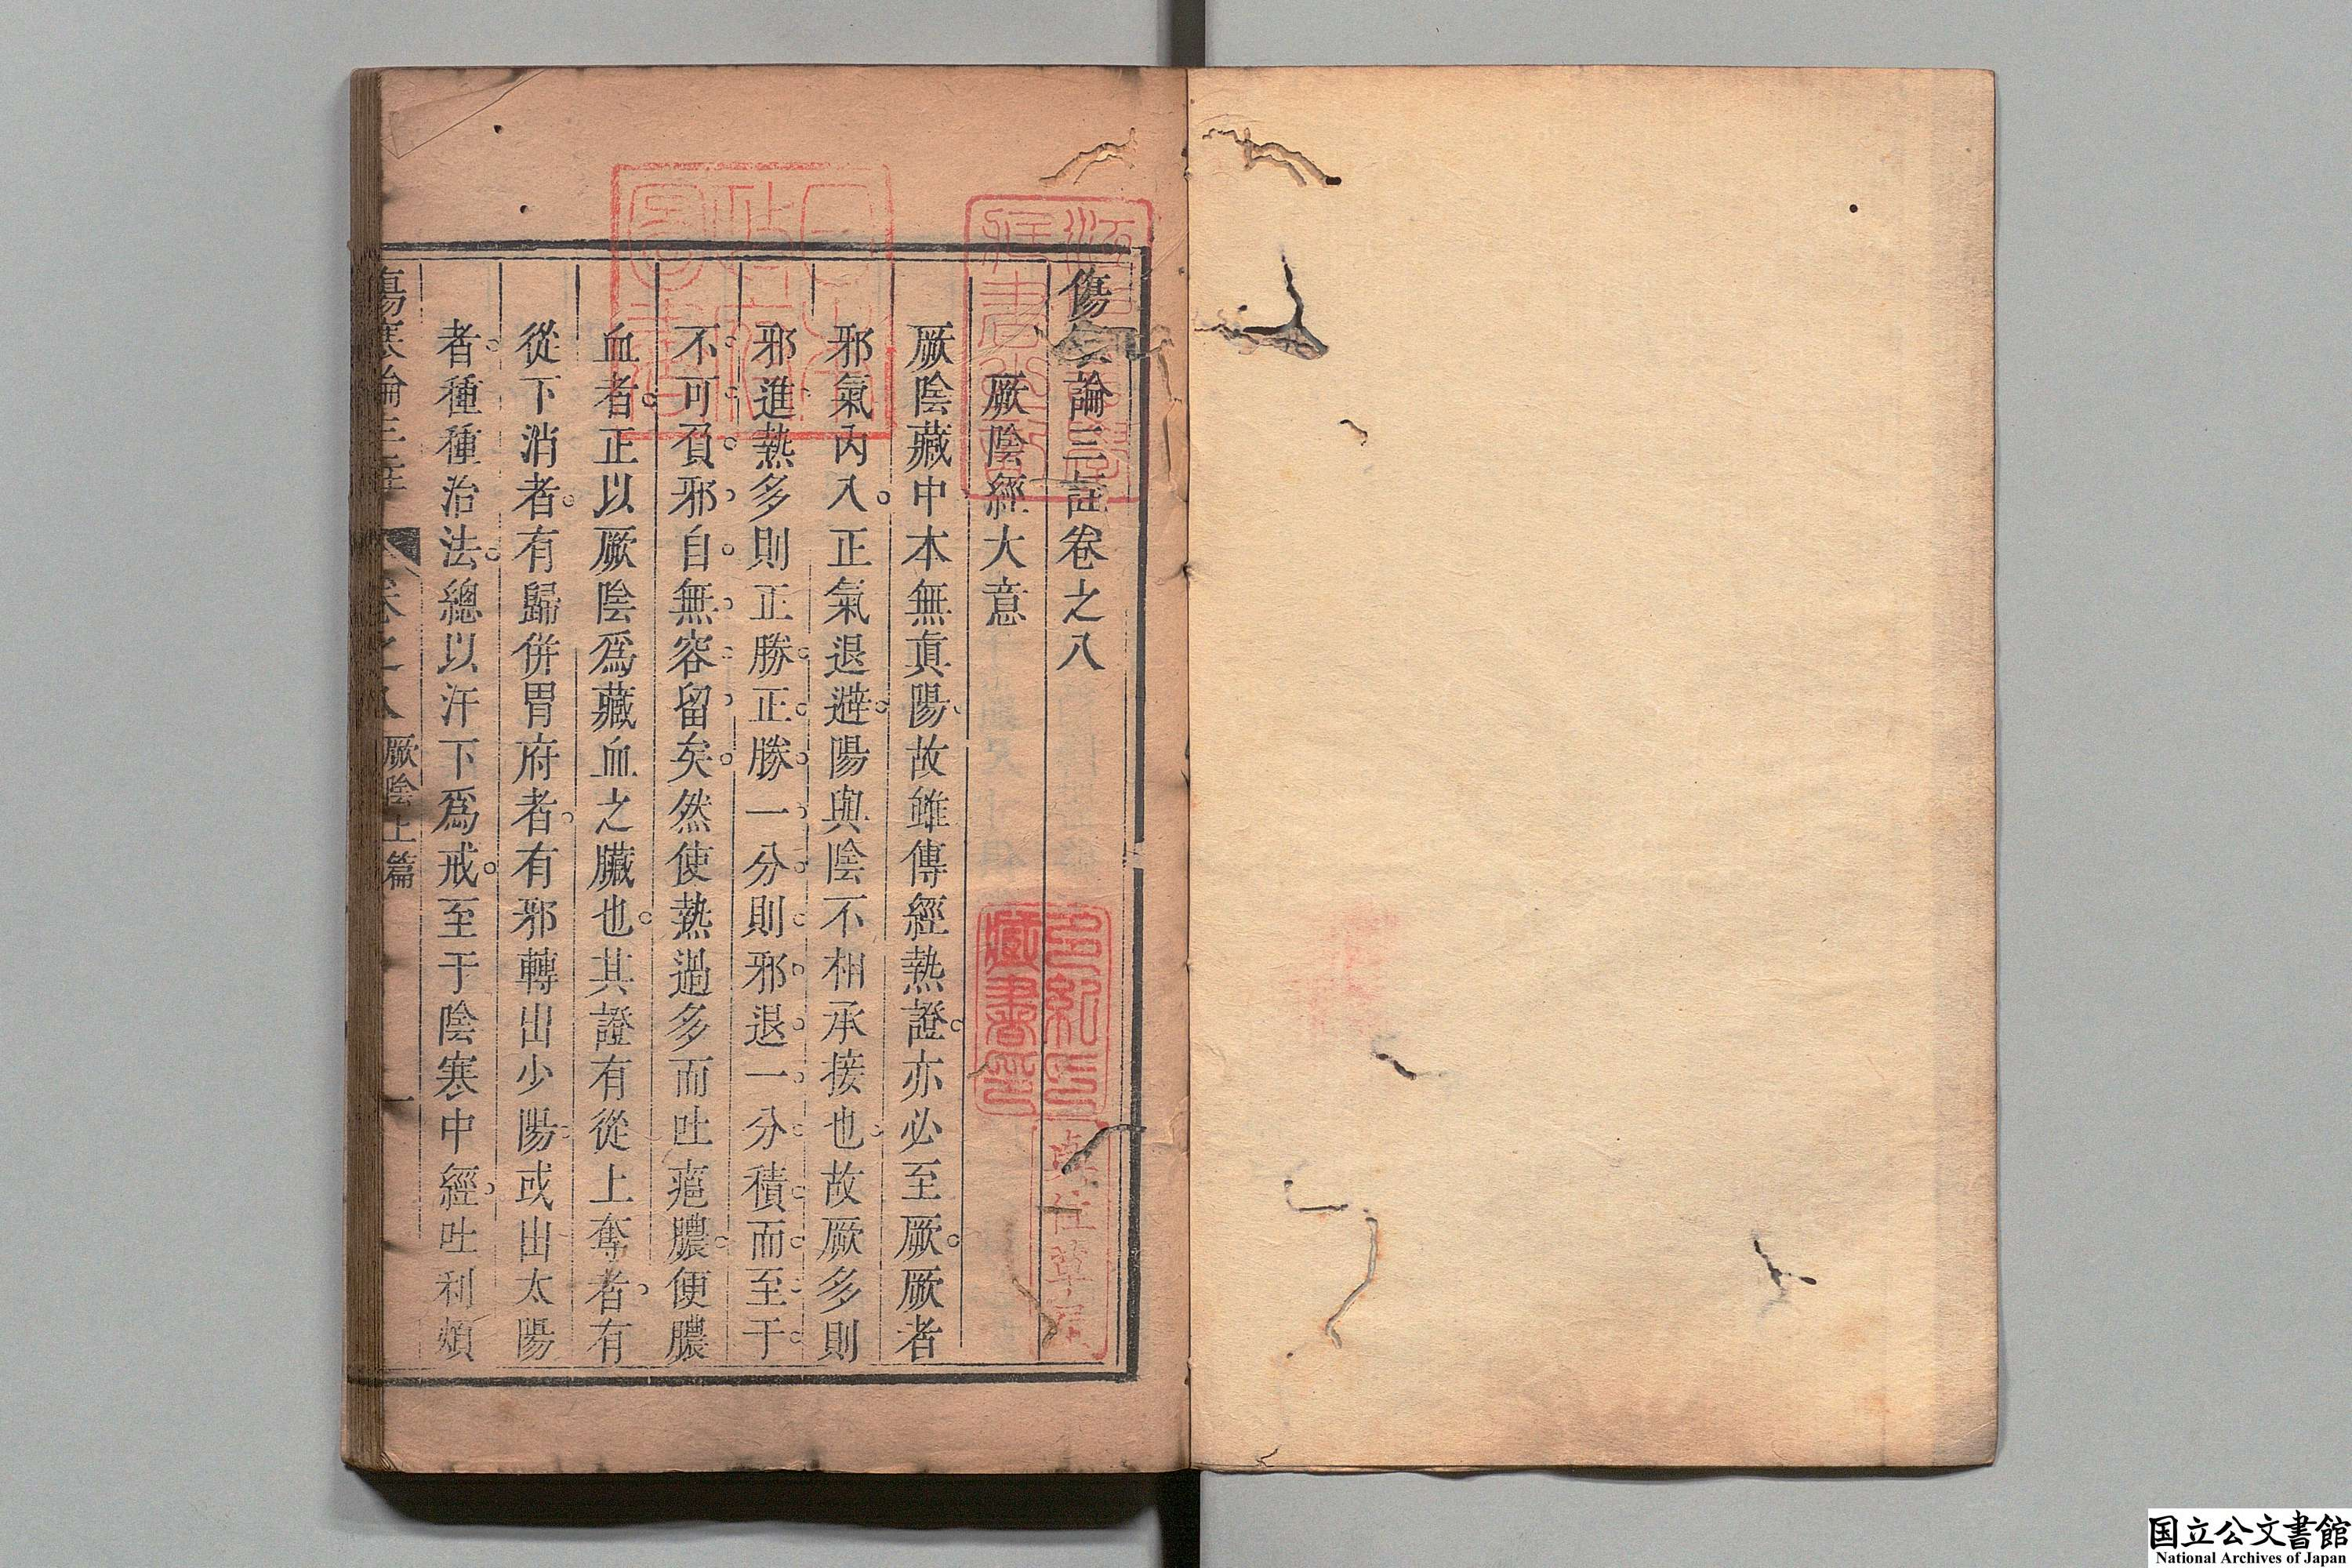 傷寒論三註卷之八
厥陰經大意
厥陰藏中本無眞陽故雖傳經熱證亦必至厥厥者
邪氣內入正氣退避陽與陰不相承接也故厥多則
邪進熱多則正勝正勝一分則邪退一分積而至于
不可負邪自無容留矣然使熱過多而吐癰膿便膿
血者正以厥陰爲藏血之臟也其證有從上奪者有
從下消者有歸併胃府者有邪轉出少陽或出太陽
者種種治法總以汗下爲戒至于陰寒中經吐利煩
傷寒論三註 卷之八 厥陰上篇 一
藏書印
国立公文書館
National Archives of Japan